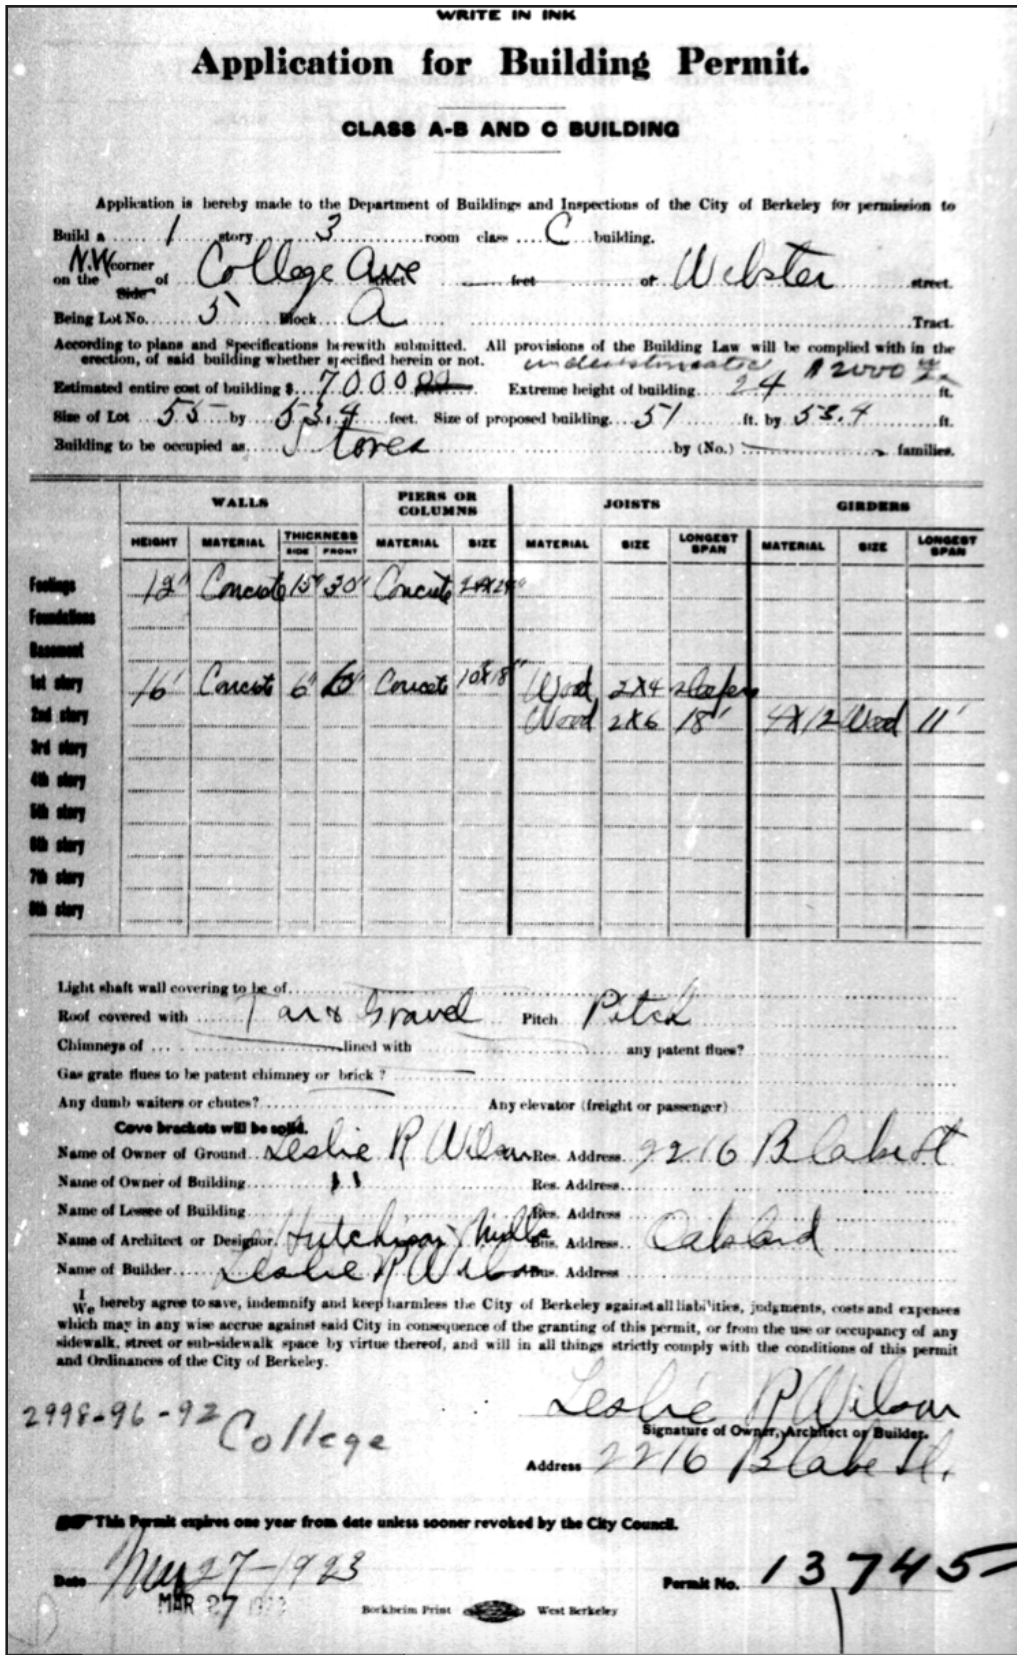 WRITE IN INK
Application for Building Permit.
CLASS A-B AND C BUILDING
Application is hereby made to the Department of Buildings and Inspections of the City of Berkeley for permission to
Build a 1 story 3 room class C building.
N.W corner
on the Side of College Ave feet or Webster street.
Being Lot No. 5 Block A Tract.
According to plans and Specifications herewith submitted. All provisions of the Building Law will be complied with in the
erection, of said building whether specified herein or not. underestimated $2000
Estimated entire cost of building $ 7000 Extreme height of building 24 ft.
Size of Lot 55 by 53.4 feet. Size of proposed building 51 ft. by 53.4 ft.
Building to be occupied as Stores by (No.) families.
WALLS PIERS OR COLUMNS JOISTS GIRDERS
HEIGHT MATERIAL THICKNESS SIDE FRONT MATERIAL SIZE MATERIAL SIZE LONGEST SPAN MATERIAL SIZE LONGEST SPAN
Footings 12" Concrete 15" 30" Concrete 24X24"
Foundations
Basement
1st story 16' Concrete 6" 6" Concrete 10X18" Wood 2X4 sleepers
2nd story Wood 2X6 18' 4X12 Wood 11'
3rd story
4th story
5th story
6th story
7th story
8th story
Light shaft wall covering to be of
Roof covered with Tar & Gravel Pitch Pitch
Chimneys of lined with any patent flues?
Gas grate flues to be patent chimney or brick?
Any dumb waiters or chutes? Any elevator (freight or passenger)
Cove brackets will be solid.
Name of Owner of Ground Leslie R Wilson Res. Address 2216 Blake St
Name of Owner of Building " Res. Address
Name of Lessee of Building Res. Address
Name of Architect or Designor Hutchison & Mills Bus. Address Oakland
Name of Builder Leslie R Wilson Bus. Address
I
We hereby agree to save, indemnify and keep harmless the City of Berkeley against all liabilities, judgments, costs and expenses
which may in any wise accrue against said City in consequence of the granting of this permit, or from the use or occupancy of any
sidewalk, street or sub-sidewalk space by virtue thereof, and will in all things strictly comply with the conditions of this permit
and Ordinances of the City of Berkeley.
Leslie R Wilson
2998-96-92 College
Signature of Owner, Architect or Builder.
Address 2216 Blake St.
This Permit expires one year from date unless sooner revoked by the City Council.
Date Mar 27-1923 Permit No. 13745
MAR 27 1923
Borkheim Print West Berkeley